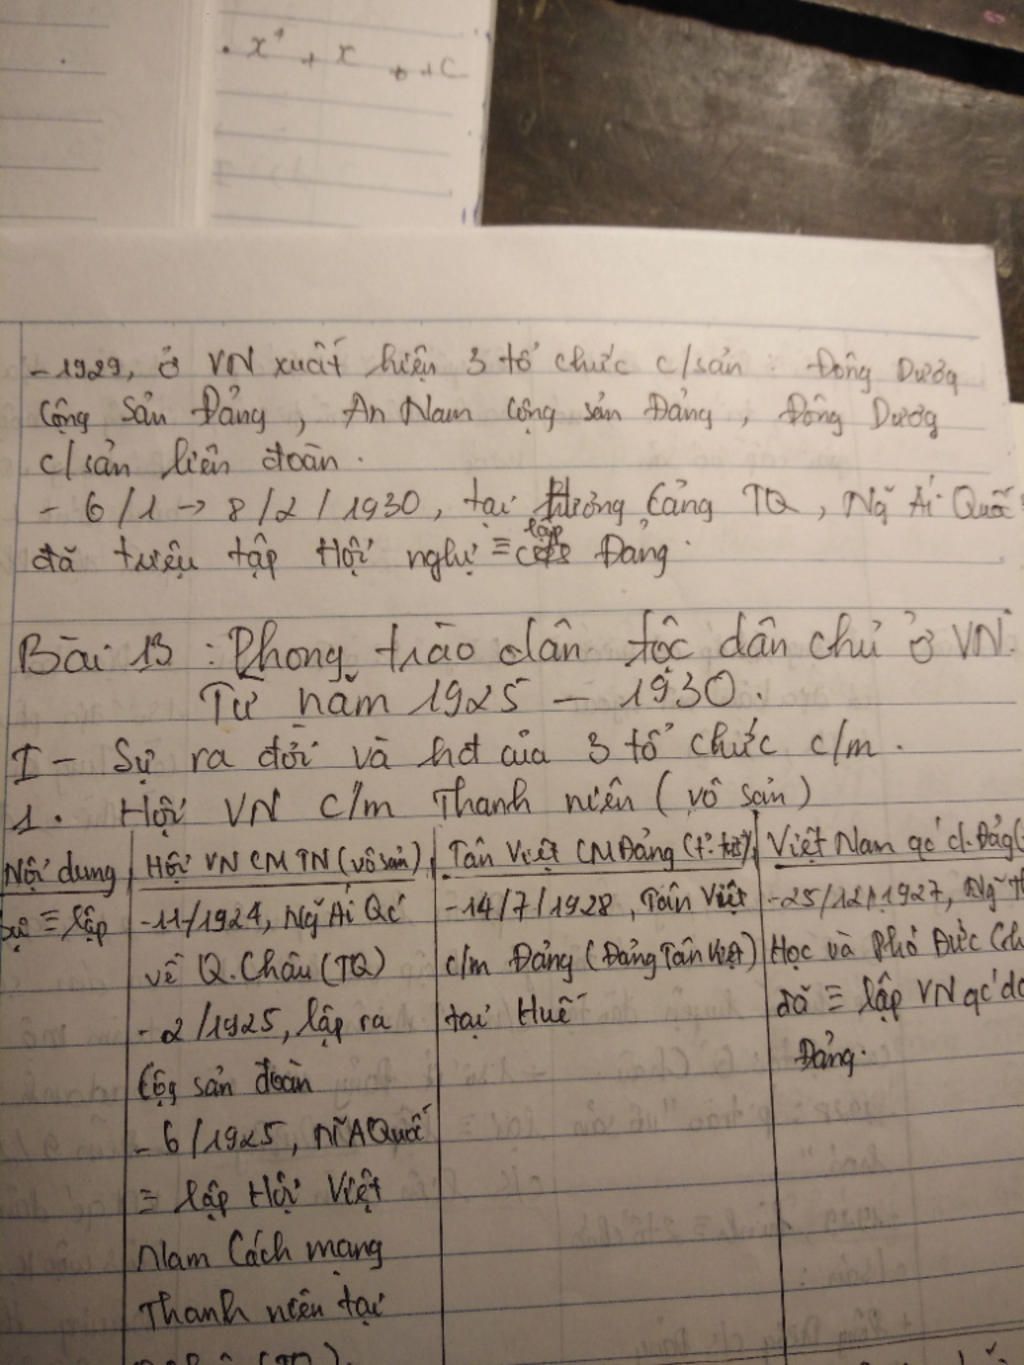 x⁴ + x + c
- 1929, ở VN xuất hiện 3 tổ chức c/sản : Đông Dươg
Cộng Sản Đảng, An Nam Cộng sản Đảng, Đông Dươg
c/sản liên đoàn.
- 6/1 → 8/2/1930, tại Hương Cảng TQ, Ng̃ Ái Quốc
đã triệu tập Hội nghị ≡ lập Đảng.
Bài 13 : Phong trào dân tộc dân chủ ở VN.
Từ năm 1925 – 1930.
I – Sự ra đời và hđ của 3 tổ chức c/m.
1. Hội VN C/m Thanh niên (vô sản)
Nội dung | Hội VN CM TN (vô sản) | Tân Việt CM Đảng | Việt Nam qố d. Đảg
≡ lập | - 11/1924, Ng̃ Ái Qố | - 14/7/1928, Tân Việt | - 25/12/1927, Ng̃
về Q. Châu (TQ) | c/m Đảng (Đảng Tân Việt) | Học và Phó Đức
- 2/1925, lập ra | tại Huế | đã ≡ lập VN qố
Cộg sản đoàn | Đảng.
- 6/1925, Ñ A Quốc
≡ lập Hội Việt
Nam Cách mạng
Thanh niên tại